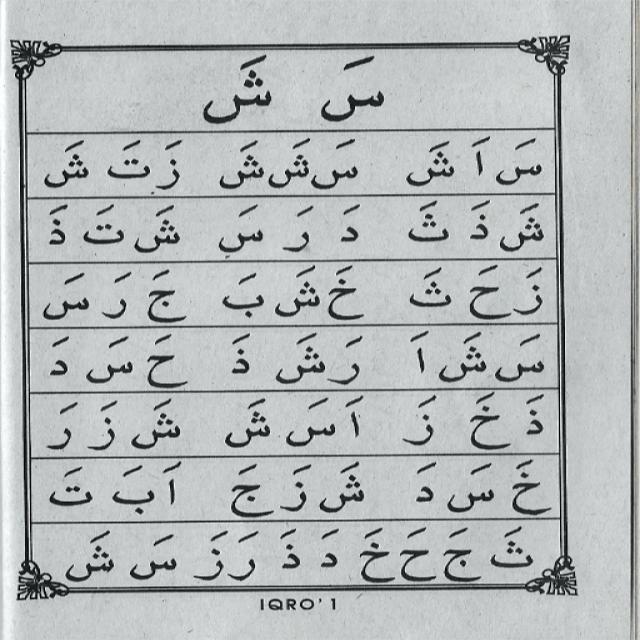 سَ شَ
سَ اَ شَ سَ شَ شَ زَ تَ شَ
شَ ذَ ثَ دَ رَ سَ شَ تَ ذَ
زَ حَ ثَ خَ شَ بَ جَ رَ سَ
سَ شَ اَ رَ شَ ذَ حَ سَ دَ
ذَ خَ زَ اَ سَ شَ شَ زَ رَ
خَ سَ دَ شَ زَ جَ اَ بَ تَ
ثَ جَ حَ خَ دَ ذَ رَ زَ سَ شَ
IQRO' 1